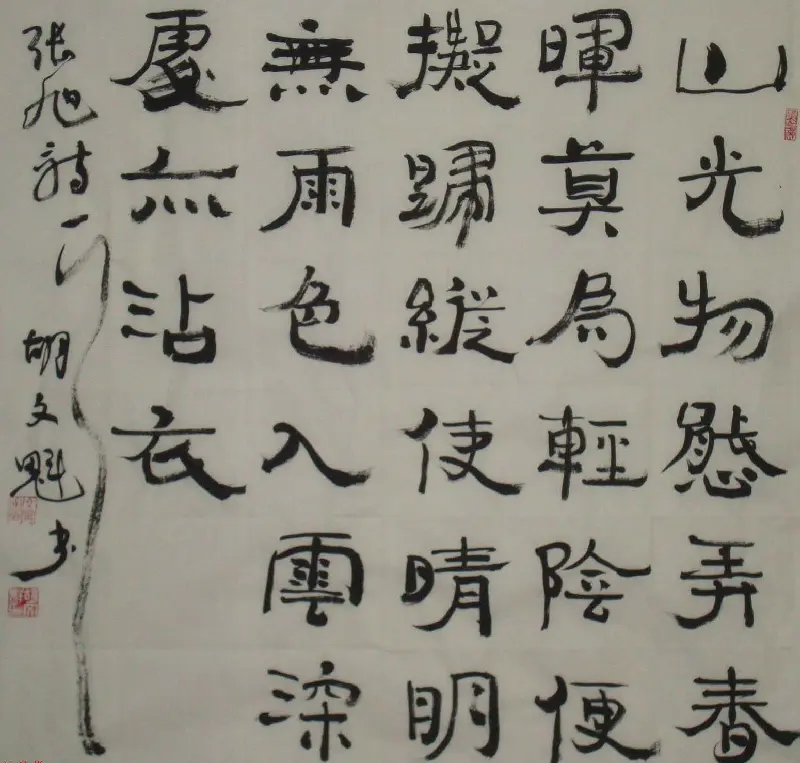 山光物態弄春
暉莫為輕陰便
擬歸縱使晴明
無雨色入雲深
處亦沾衣
张旭诗一首 胡文魁书